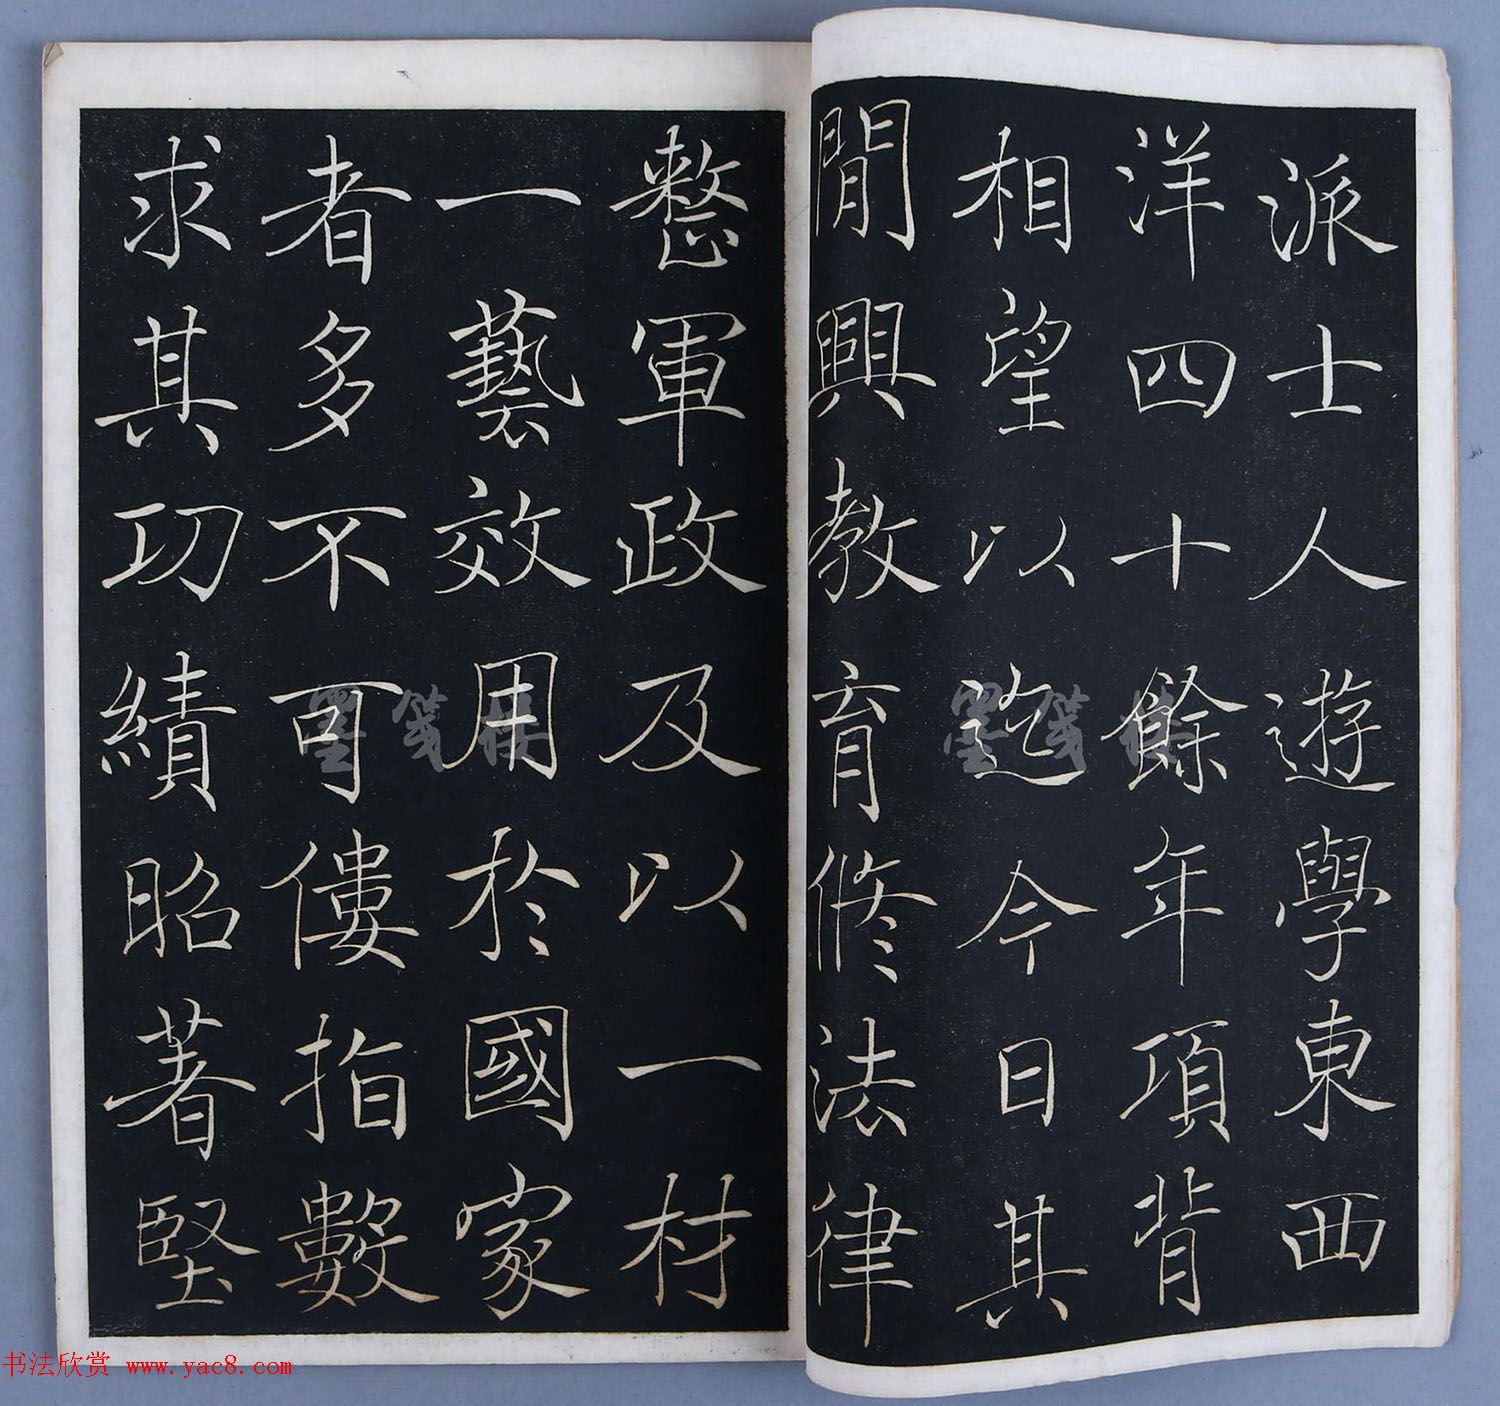 派士人遊學東西
洋四十餘年項背
相望以迄今日其
間興教育修法律
整軍政及以一材
一藝效用於國家
者多不可僂指數
求其功績昭著堅
墨箋樓
墨箋樓
书法欣赏 www.yac8.com